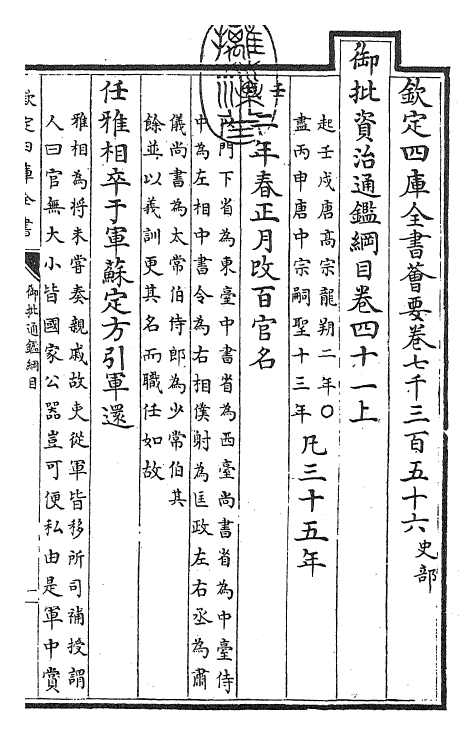 欽定四庫全書薈要卷七千三百五十六史部
御批資治通鑑綱目卷四十一上
起壬戌唐高宗龍朔二年○
盡丙申唐中宗嗣聖十三年
凡三十五年
二年春正月改百官名
門下省為東臺中書省為西臺尚書省為中臺侍
中為左相中書令為右相僕射為匡政左右丞為肅
儀尚書為太常伯侍郎為少常伯其
餘並以義訓更其名而職任如故
任雅相卒于軍蘇定方引軍還
雅相為將未嘗奏親戚故吏從軍皆移所司補授謂
人曰官無大小皆國家公器豈可便私由是軍中賞
欽定四庫全書
御批通鑑綱目